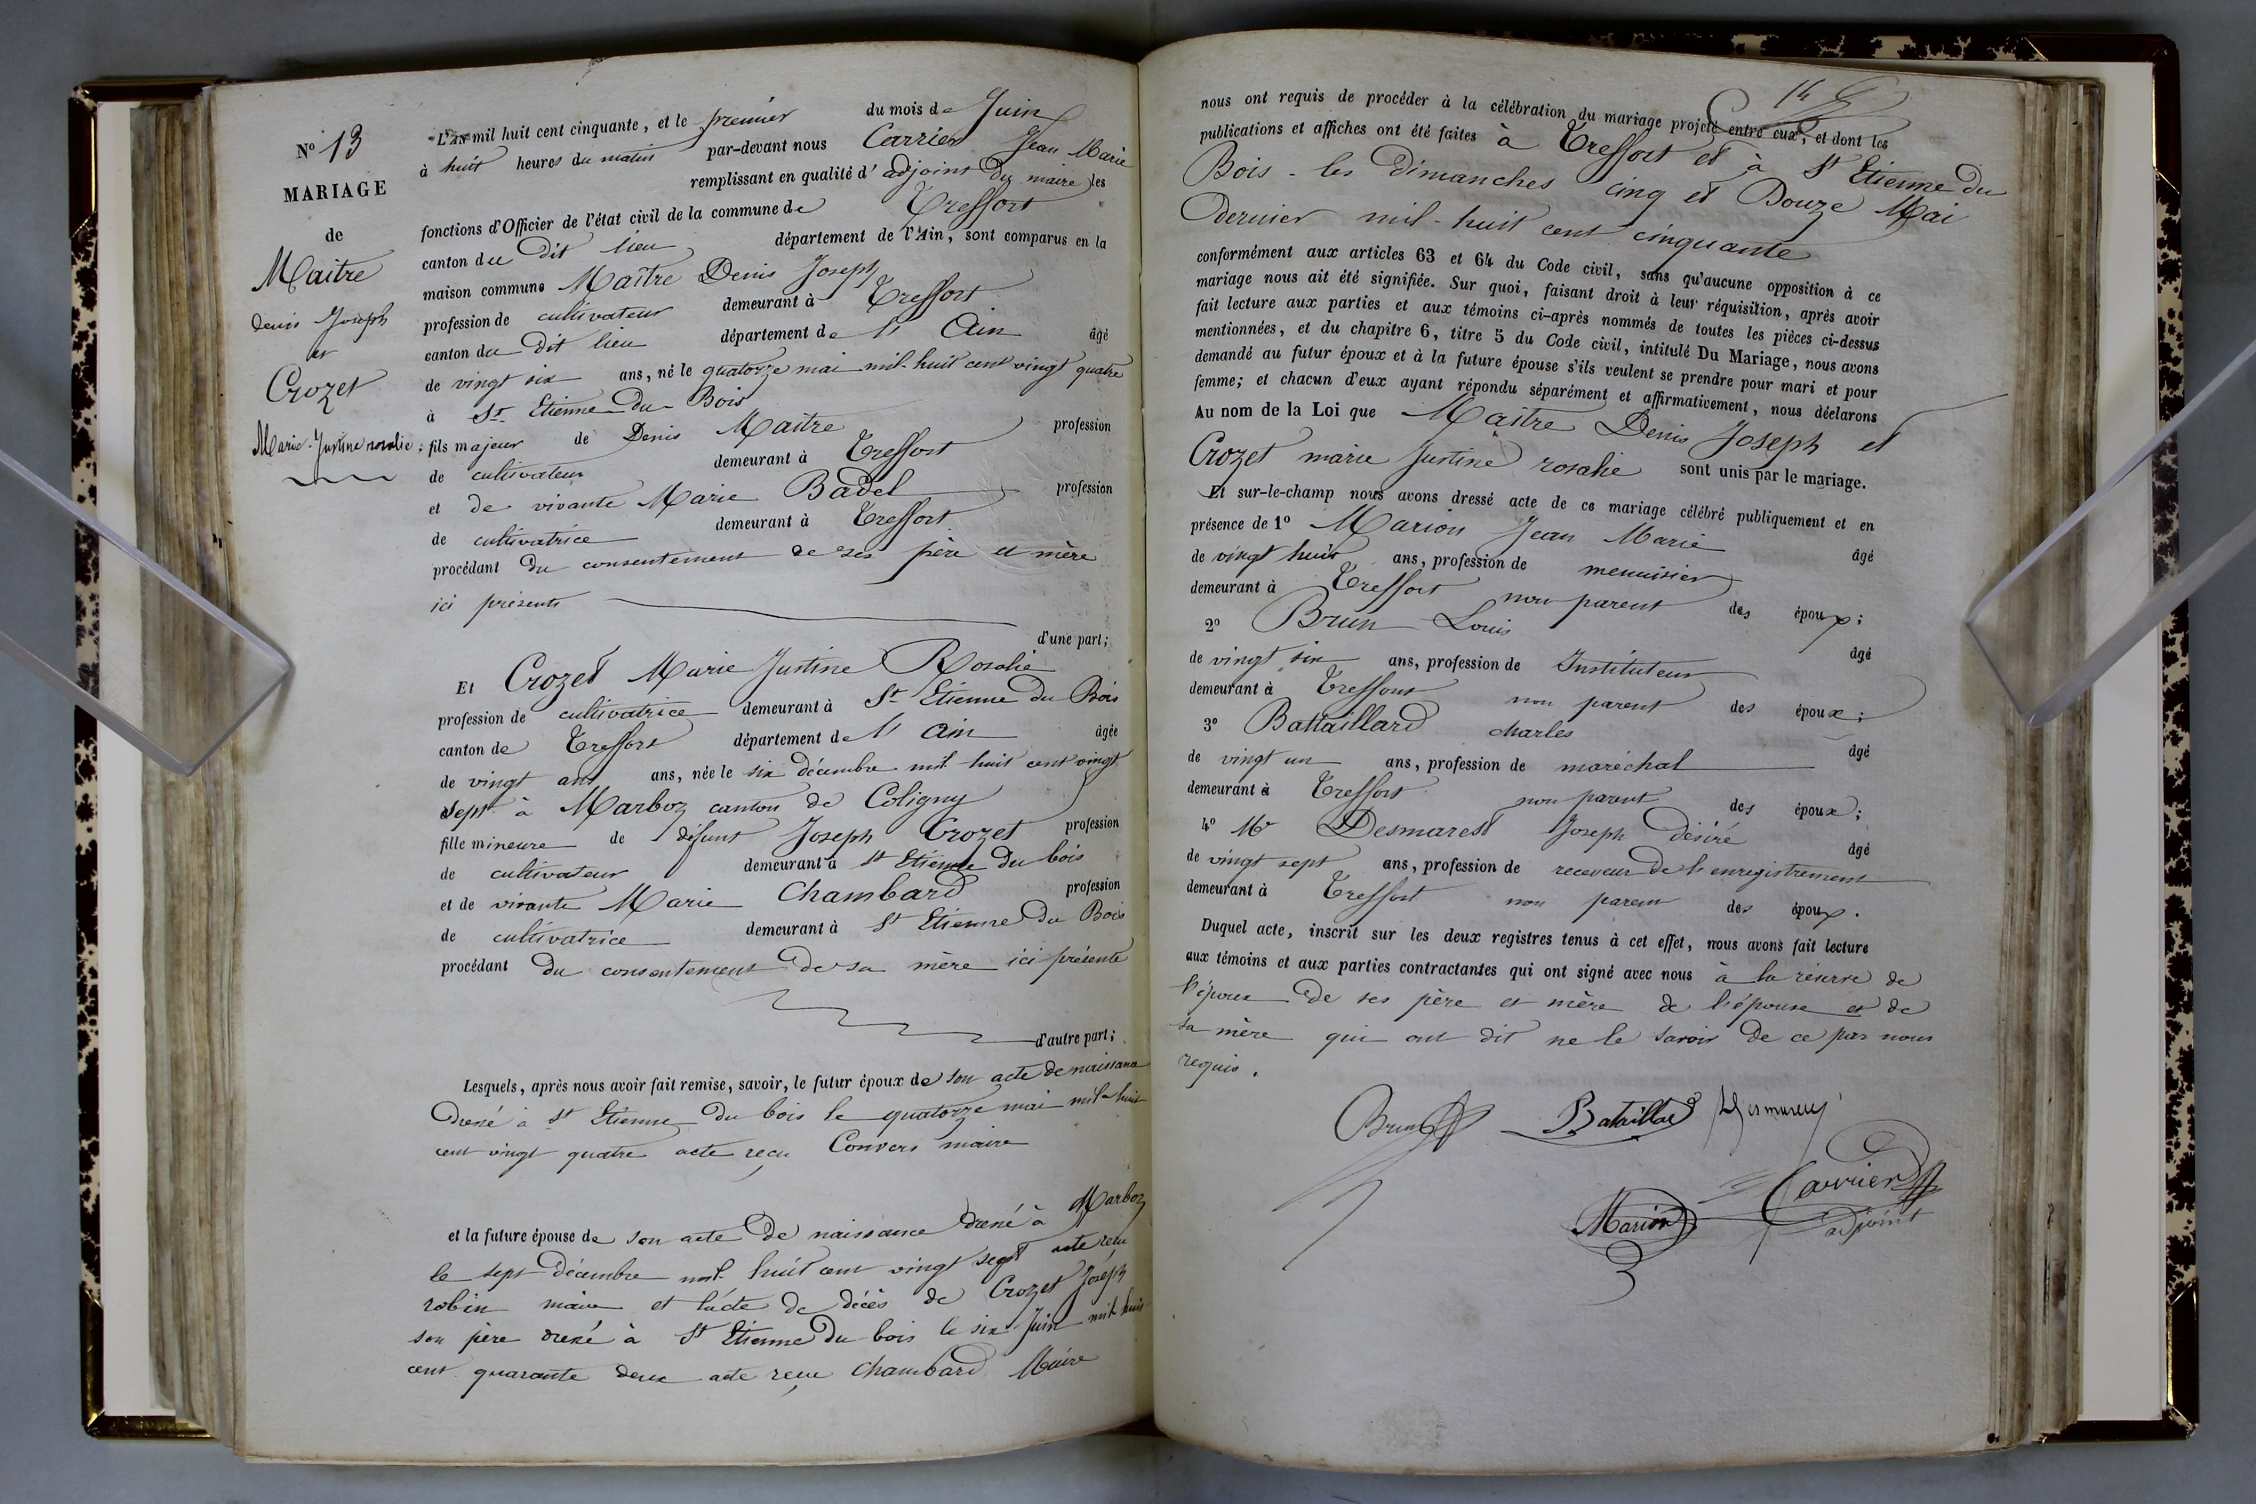 N° 13
MARIAGE
de
Maitre
denis Joseph
et
Crozet
Marie-Justine rosalie
L'AN mil huit cent cinquante, et le premier du mois de Juin
à huit heures du matin par-devant nous Carrier Jean Marie
remplissant en qualité d'adjoint du maire les
fonctions d'Officier de l'état civil de la commune de Treffort
canton du dit lieu département de l'Ain, sont comparus en la
maison commune Maitre Denis Joseph
profession de cultivateur demeurant à Treffort
canton du dit lieu département de l'Ain âgé
de vingt six ans, né le quatorze mai mil-huit cent vingt quatre
à St Etienne du Bois
fils majeur de Denis Maitre profession
de cultivateur demeurant à Treffort
et de vivante Marie Badel profession
de cultivatrice demeurant à Treffort
procédant du consentement de ses père et mère
ici présents
d'une part;
Et Crozet Marie Justine Rosalie
profession de cultivatrice demeurant à St Etienne du Bois
canton de Treffort département de l'Ain âgée
de vingt ans ans, née le six décembre mil huit cent vingt
sept à Marboz canton de Coligny
fille mineure de défunt Joseph Crozet profession
de cultivateur demeurant à St Etienne du bois
et de vivante Marie Chambard profession
de cultivatrice demeurant à St Etienne du Bois
procédant du consentement de sa mère ici présente
d'autre part;
Lesquels, après nous avoir fait remise, savoir, le futur époux de son acte de naissance
dressé à St Etienne du bois le quatorze mai mil huit
cent vingt quatre acte reçu Convers maire
et la future épouse de son acte de naissance dressé à Marboz
le sept décembre mil huit cent vingt sept acte reçu
robin maire et l'acte de décès de Crozet Joseph
son père dressé à St Etienne du bois le six Juin mil huit
cent quarante deux acte reçu Chambard Maire
14
nous ont requis de procéder à la célébration du mariage projeté entre eux, et dont les
publications et affiches ont été faites à Treffort et à St Etienne du
Bois - les Dimanches cinq et Douze Mai
Dernier mil-huit cent cinquante
conformément aux articles 63 et 64 du Code civil, sans qu'aucune opposition à ce
mariage nous ait été signifiée. Sur quoi, faisant droit à leur réquisition, après avoir
fait lecture aux parties et aux témoins ci-après nommés de toutes les pièces ci-dessus
mentionnées, et du chapitre 6, titre 5 du Code civil, intitulé Du Mariage, nous avons
demandé au futur époux et à la future épouse s'ils veulent se prendre pour mari et pour
femme; et chacun d'eux ayant répondu séparément et affirmativement, nous déclarons
Au nom de la Loi que Maitre Denis Joseph et
Crozet marie Justine rosalie sont unis par le mariage.
Et sur-le-champ nous avons dressé acte de ce mariage célébré publiquement et en
présence de 1° Marion Jean Marie âgé
de vingt huit ans, profession de menuisier
demeurant à Treffort non parent des époux;
2° Brun Louis âgé
de vingt six ans, profession de Instituteur
demeurant à Treffort non parent des époux;
3° Battaillard charles âgé
de vingt un ans, profession de maréchal
demeurant à Treffort non parent des époux;
4° Mr Desmarest Joseph désiré âgé
de vingt sept ans, profession de receveur de l'enregistrement
demeurant à Treffort non parent des époux.
Duquel acte, inscrit sur les deux registres tenus à cet effet, nous avons fait lecture
aux témoins et aux parties contractantes qui ont signé avec nous à la réserve de
l'époux de ses père et mère de l'épouse et de
sa mère qui ont dit ne le savoir de ce par nous
requis.
Brun Bataillard Desmarest
Carrier
Marion adjoint